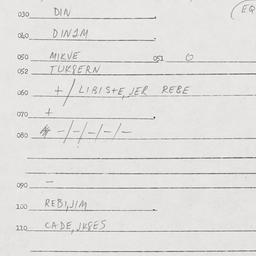 (EQ
030 DIN
040 DIN2M
050 MIKVE 051 0
052 TUKSERN
060 +/LIBISTE, JER REBE
070 +
080 -/-/-/-/-
090 -
100 REBI, JIM
110 CADE, JKSES